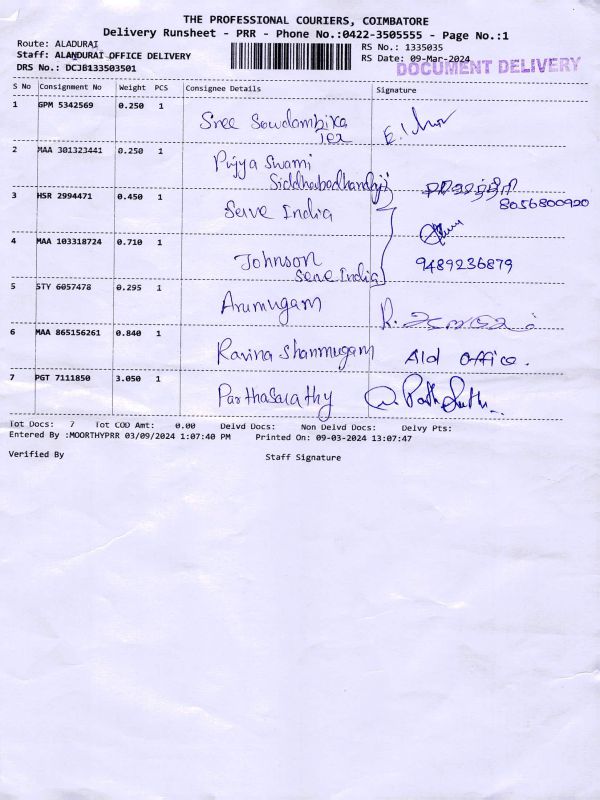 THE PROFESSIONAL COURIERS, COIMBATORE
Delivery Runsheet - PRR - Phone No.:0422-3505555 - Page No.:1
Route: ALADURAI
RS No.: 1335035
Staff: ALANDURAI OFFICE DELIVERY
RS Date: 09-Mar-2024
DRS No.: DCJ8133503501
DOCUMENT DELIVERY
S No Consignment No Weight PCS Consignee Details Signature
1 GPM 5342569 0.250 1
Sree Sowdambika
Tex
2 MAA 301323441 0.250 1
Pujya Swami
Siddhabodhandaji
8056800920
3 HSR 2994471 0.450 1
Serve India
4 MAA 103318724 0.710 1
Johnson 9489236879
Serve India
5 STY 6057478 0.295 1
Arumugam
6 MAA 865156261 0.840 1
Ravina Shanmugam Ald office.
7 PGT 7111850 3.050 1
Parthasarathy
Tot Docs: 7 Tot COD Amt: 0.00 Delvd Docs: Non Delvd Docs: Delvy Pts:
Entered By :MOORTHYPRR 03/09/2024 1:07:40 PM Printed On: 09-03-2024 13:07:47
Verified By Staff Signature